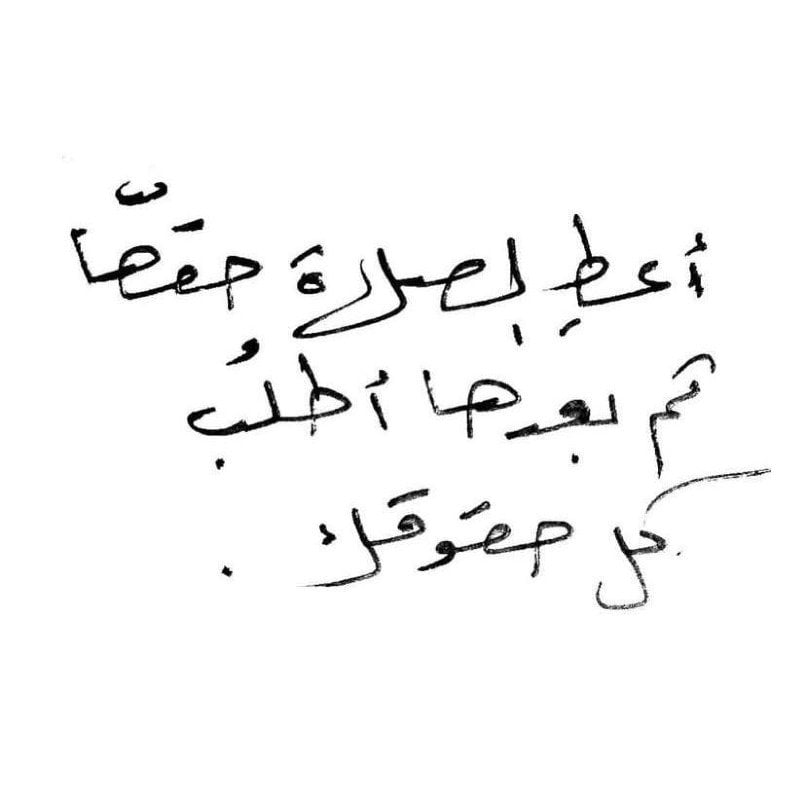 أعطِ الصلاة حقّها
ثم بعدها أطلبُ
كل حقوقك .